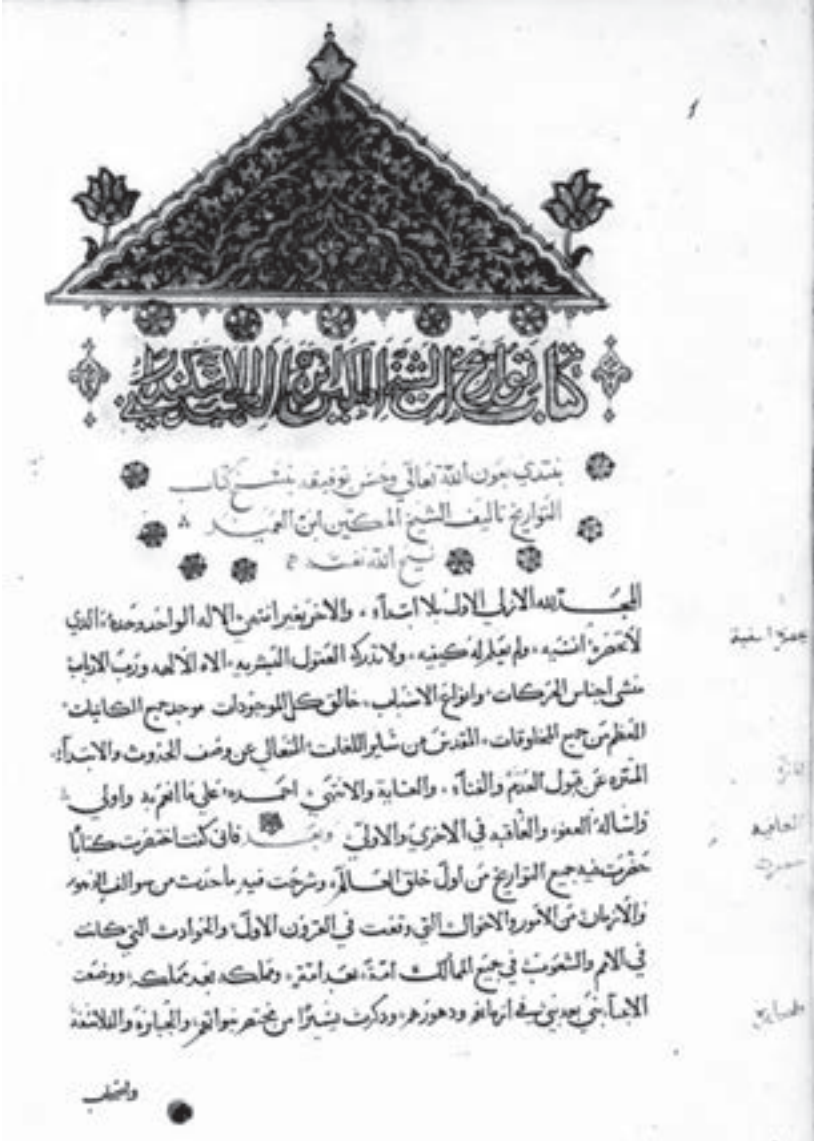 1
كتاب تواريخ الشيخ المكين ابن العميد
نبتدي بعون الله تعالي وحسن توفيقه بنسخ كتاب
التواريخ تاليف الشيخ المكين ابن العميد
نيح الله نفسه
المجد لله الازلي الاول بلا ابتدآء والاخر بغير انتهى الاله الواحد وحده الذي
ولم يعلم له كيفيه ولا تدركه العقول البشريه الاه الالهه ورب الارباب
منشى اجناس الحركات وانواع الاسباب خالق كل الموجودات موجد جميع الكاينات
المعظم من جميع المخلوقات المقدس من ساير اللغات المتعالي عن وصف الحدوث والابتدآء
المنزه عن قبول العدم والفنآء والغاية والانتهى احمده علي ما انعم به واولي
واساله العفو والعافيه في الاخري والاولي وبعد فاني كنت اختصرت كتابًا
حضرت فيه جميع التواريخ من اول خلق العالم وشرحت فيه ما حدث من سوالف الدهور
والازمان من الامور والاحوال التي وقعت في القرون الاول والحوادث التي كانت
في الامم والشعوب في جميع الممالك امة بعد امة ومملكه بعد مملكه ووضعت
الانبيآ نبي بعد نبي في ازمانهم ودهورهم وذكرت يسيرًا من مختصر نبواتهم والجبابرة والفلاسفة
العافيه